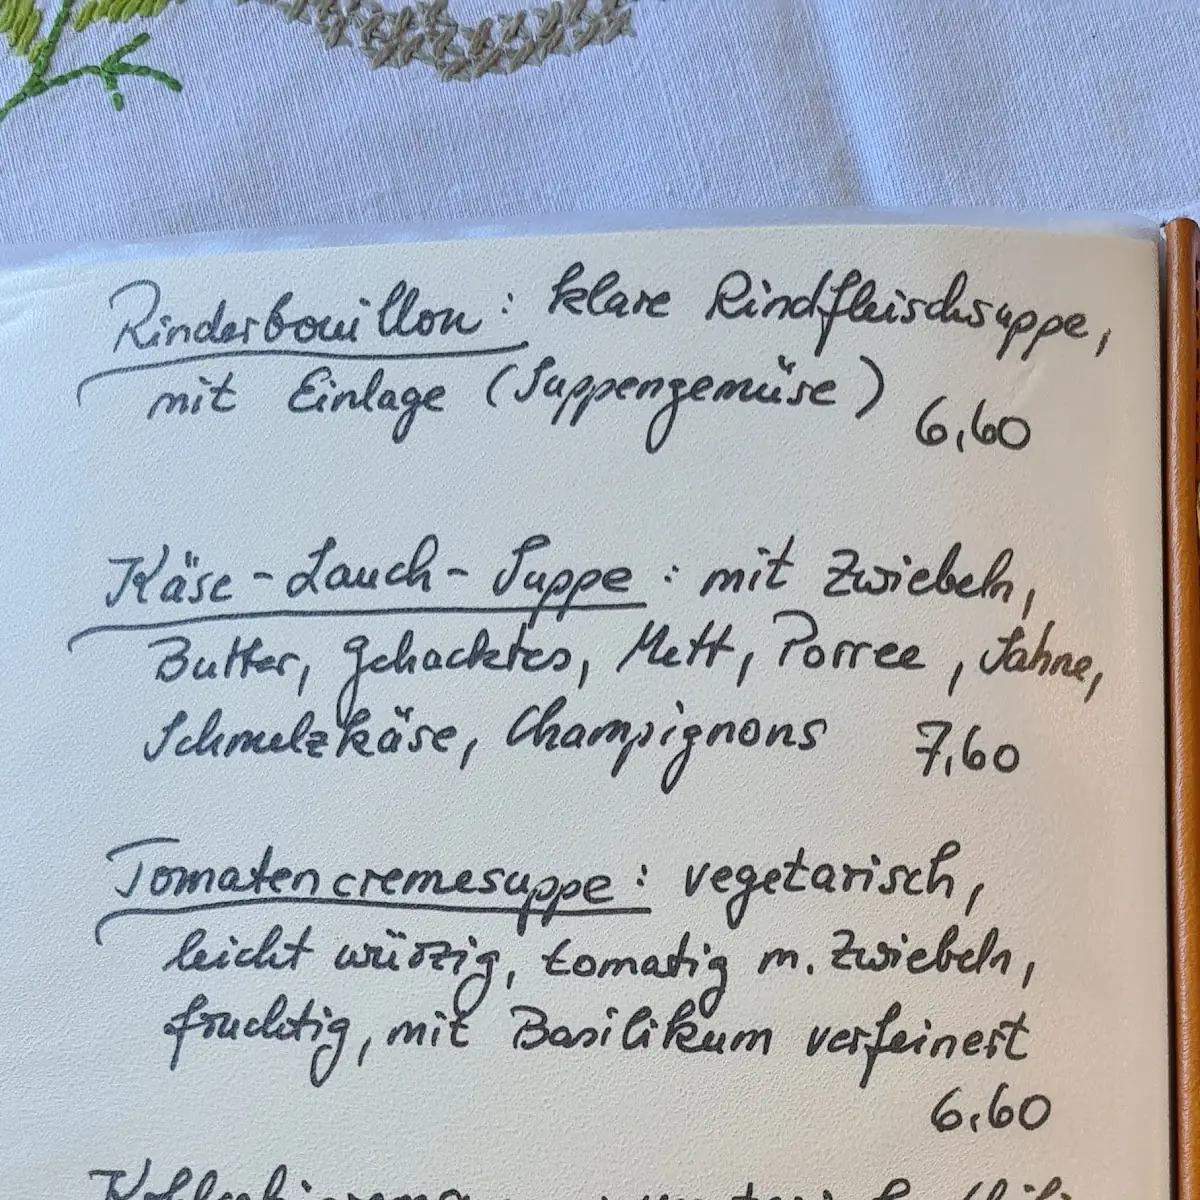 Rinderbouillon: klare Rindfleischsuppe,
mit Einlage (Suppengemüse) 6,60
Käse-Lauch-Suppe: mit Zwiebeln,
Butter, Gehacktes, Mett, Porree, Sahne,
Schmelzkäse, Champignons 7,60
Tomatencremesuppe: vegetarisch,
leicht würzig, tomatig m. Zwiebeln,
fruchtig, mit Basilikum verfeinert
6,60